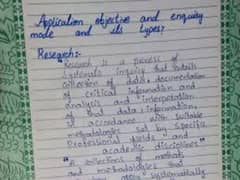 Application objective and enquiry
mode and its types?
Research:-
"Research is a process of
systematic inquiry that entails
collection of data; documentation
of critical information and
analysis and interpretation
of that data; information,
in accordance with suitable
methodologies set by specific
Professional fields and
academic disciplines"
"A collections of methods
and methodologies that
systematically